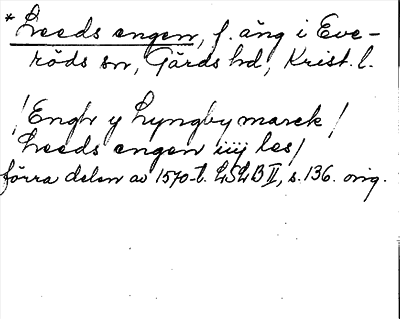 * Leeds engen, f. äng i Eve-
röds sn, Gärds hd, Krist. l.
/Engh y Lyngby marck/
Leeds engen iiij les/
förra delen av 1570-t. LSLB II, s. 136. orig.